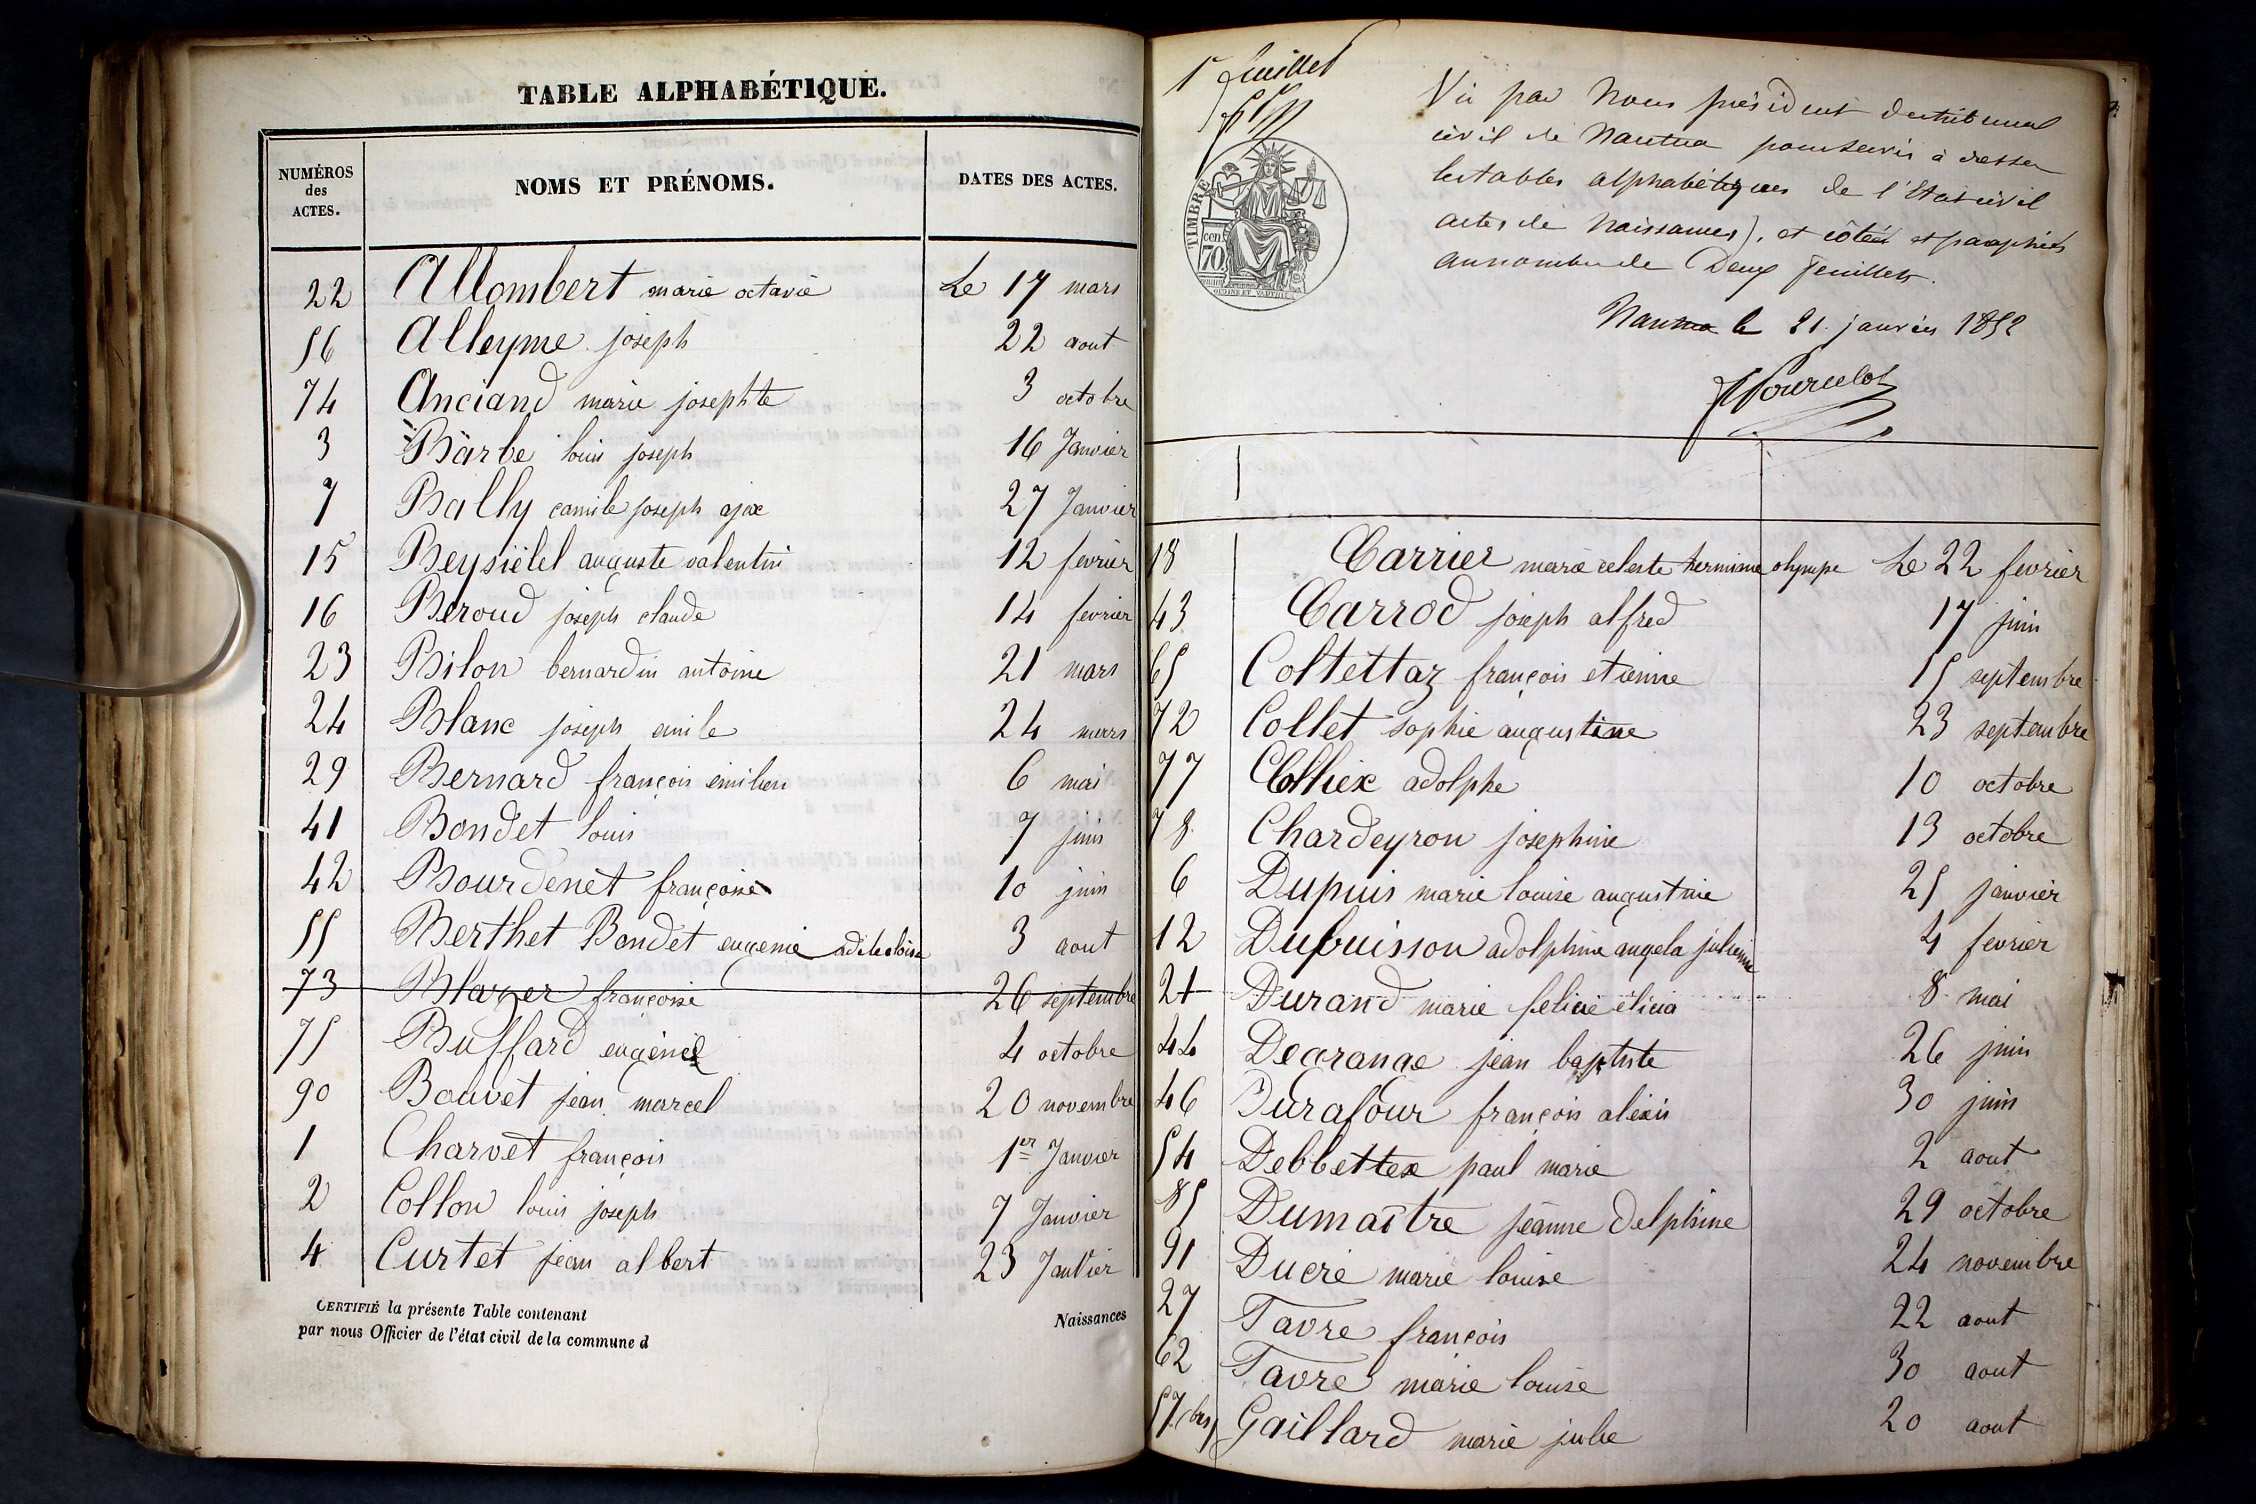 TABLE ALPHABÉTIQUE.
NUMÉROS des ACTES. NOMS ET PRÉNOMS. DATES DES ACTES.
22 Allombert marie octavie Le 17 mars
56 Alleyme joseph 22 aout
74 Anciand marie josephte 3 octobre
3 Barbe louis joseph 16 Janvier
7 Bally camile joseph ajax 27 Janvier
15 auguste valentin 12 fevrier
16 Beroud joseph claude 14 fevrier
23 Bilon bernardin antoine 21 mars
24 Blanc joseph emile 24 mars
29 Bernard françois émilien 6 mai
41 Bondet louis 7 juin
42 Bourdenet françoise 10 juin
55 Berthet Bondet eugenie 3 aout
73 françoise 26 septembre
75 Buffard eugénie 4 octobre
90 Bouvet jean marcel 20 novembre
1 Charvet françois 1er Janvier
2 Collon louis joseph 7 Janvier
4 Curtet jean albert 23 Janvier
CERTIFIÉ la présente Table contenant Naissances
par nous Officier de l'état civil de la commune d
1r feuillet
TIMBRE
cen
70
Vu par Nous président du tribunal
civil de Nantua pour servir à dresser
les tables alphabétiques de l'Etat civil
actes de Naissances), et côtées et paraphées
au nombre de Deux feuillets.
Nantua le 21 janvier 1852
18 Carrier marie celeste hermine olympe Le 22 fevrier
43 Carrod joseph alfred 17 juin
65 Coltettaz françois etienne 15 septembre
72 Collet sophie augustine 23 septembre
77 Colliex adolphe 10 octobre
78 Chardeyron josephine 13 octobre
6 Dupuis marie louise augustine 25 janvier
12 Dubuisson adolphine angela julienne 4 fevrier
Durand marie felicie élisa 8 mai
44 Degrange jean baptiste 26 juin
46 Durafour françois aléxis 30 juin
54 Debbettex paul marie 2 aout
85 Dumaître jeanne delphine 29 octobre
91 Ducré marie louise 24 novembre
27 Favre françois 22 aout
62 Favre marie louise 30 aout
57 (bis) Gaillard marie julie 20 aout